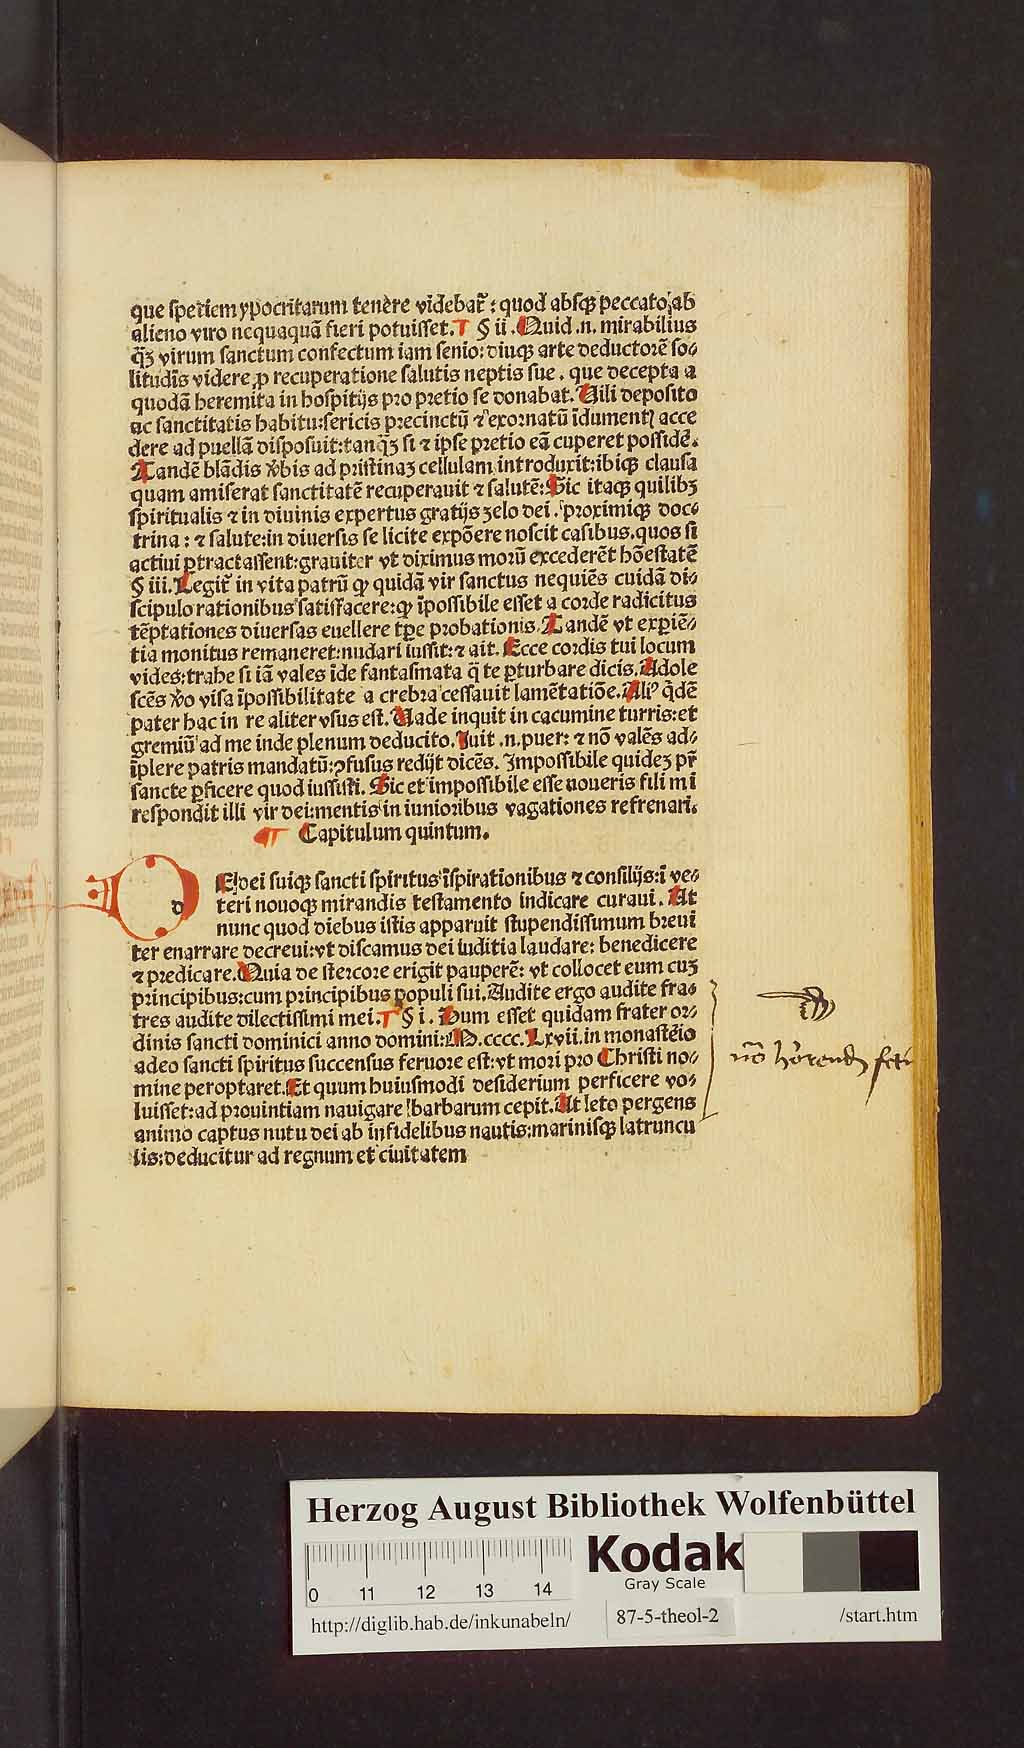 que speciem ypocritarum tenère videbat᷑ : quod absqꝫ peccato ab
alieno viro nequaquã fieri potuisset. § ii . Quid .n. mirabilius
q̃ꝫ virum sanctum confectum iam senio: diuqꝫ arte deductorẽ so⸗
litudĩs videre ꝓ recuperatione salutis neptis sue . que decepta a
quodã heremita in hospitijs pro pretio se donabat. Uili deposito
ac sanctitatis habitu: sericis precinctũ ⁊ exornatũ ĩdumentꝭ acce
dere ad puellã disposuit: tanqꝫ̃ si ⁊ ipse pretio eã cuperet possidẽ.
Tandẽ blãdis v̾bis ad pristinaꝫ cellulam introduxit: ibiqꝫ clausa
quam amiserat sanctitatẽ recuperauit ⁊ salutẽ: Sic itaqꝫ quilibꝫ
spiritualis ⁊ in diuinis expertus gratijs zelo dei . proximiqꝫ doc⸗
trina : ⁊ salute: in diuersis se licite expõere noscit casibus. quos si
actiui ꝑtractassent: grauiter vt diximus morũ excederẽt hõestatẽ
§ iii. Legit᷑ in vita patrũ ꝙ quidã vir sanctus nequiẽs cuidã di⸗
scipulo rationibus satisfacere: ꝙ ĩpossibile esset a corde radicitus
tẽptationes diuersas euellere tꝑe probationis. Tandẽ vt exꝑiẽ⸗
tia monitus remaneret: nudari iussit: ⁊ ait. Ecce cordis tui locum
vides: trahe si iã vales ĩde fantasmata q̃ te ꝑturbare dicis. Adole
scẽs v̾o visa ĩpossibilitate a crebra cessauit lamẽtatiõe. Aliꝰ q̃dẽ
pater hac in re aliter vsus est. Uade inquit in cacumine turris: et
gremiũ ad me inde plenum deducito. Iuit .n. puer: ⁊ nõ valẽs ad⸗
ĩplere patris mandatũ: ꝯfusus redijt dicẽs. Impossibile quideꝫ pr̃
sancte ꝑficere quod iussisti. Sic et impossibile esse noueris fili mi
respondit illi vir dei: mentis in iunioribus vagationes refrenari.
Capitulum quintum.
d
Ei dei suiqꝫ sancti spiritus ĩspirationibus ⁊ consilijs: ĩ ve⸗
teri nouoqꝫ mirandis testamento indicare curaui . At
nunc quod diebus istis apparuit stupendissimum breui
ter enarrare decreui: vt discamus dei iuditia laudare: benedicere
⁊ predicare. Quia de stercore erigit pauperẽ: vt collocet eum cuꝫ
principibus: cum principibus populi sui. Audite ergo audite fra⸗
tres audite dilectissimi mei. § i . Dum esset quidam frater or⸗
dinis sancti dominici anno domini: M. cccc. Lxvii. in monastẽio
adeo sancti spiritus succensus feruore est: vt mori pro Christi no⸗
mine peroptaret. Et quum huiusmodi desiderium perficere vo⸗
luisset: ad prouintiam nauigare barbarum cepit. At leto pergens
animo captus nutu dei ab infidelibus nautis: marinisqꝫ latruncu
lis: deducitur ad regnum et ciuitatem
Herzog August Bibliothek Wolfenbüttel
Kodak
Gray Scale
0 11 12 13 14
http://diglib.hab.de/inkunabeln/ 87-5-theol-2 /start.htm